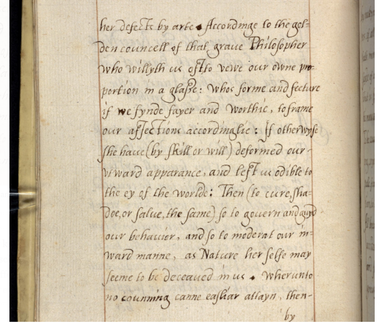 her defects by arte. Accordinge to the gol-
den councell of that grave Philosopher
who willyth us ofte to vewe our owne pro-
portion in a glasse: whos forme and fecture
if we fynde fayer and worthie, to frame
our affections accordinglie: If otherwyse
she have (by skill or will) deformed our
wward apparance, and left us odible to
the ey of the worlde: Then (to cure, sha-
doe, or salve, the same) so to govern and gyd
our behavier, and so to moderat our in-
ward manne, as Nature her selfe may
seeme to be deceaved in us. Wherunto
no counning canne easliar attayn, then-
by